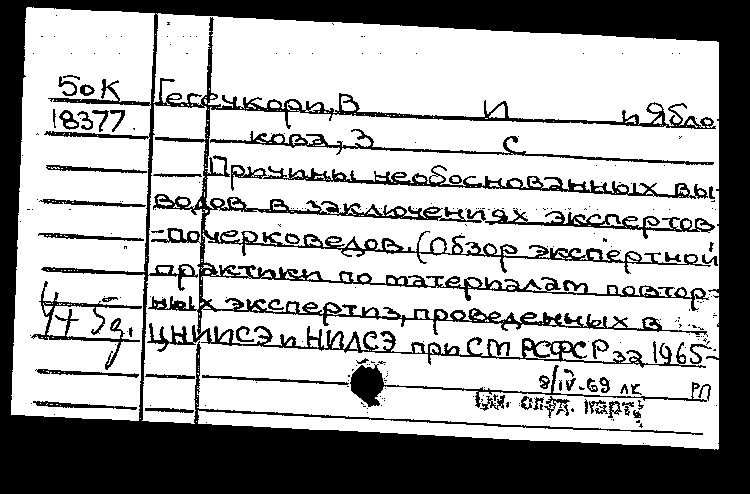 50К
18377
Гегечкори, В И и Ябло
кова, З С
Причины необоснованных вы-
водов в заключениях экспертов
-почерковедов. (Обзор экспертной
практики по материалам повтор-
ных экспертиз, проведенных в
ЦНИИСЭ и НИЛСЭ при СМ РСФСР за 1965-
Ч+ 5д.
9/IV-69 лк РП
См. след. карт.